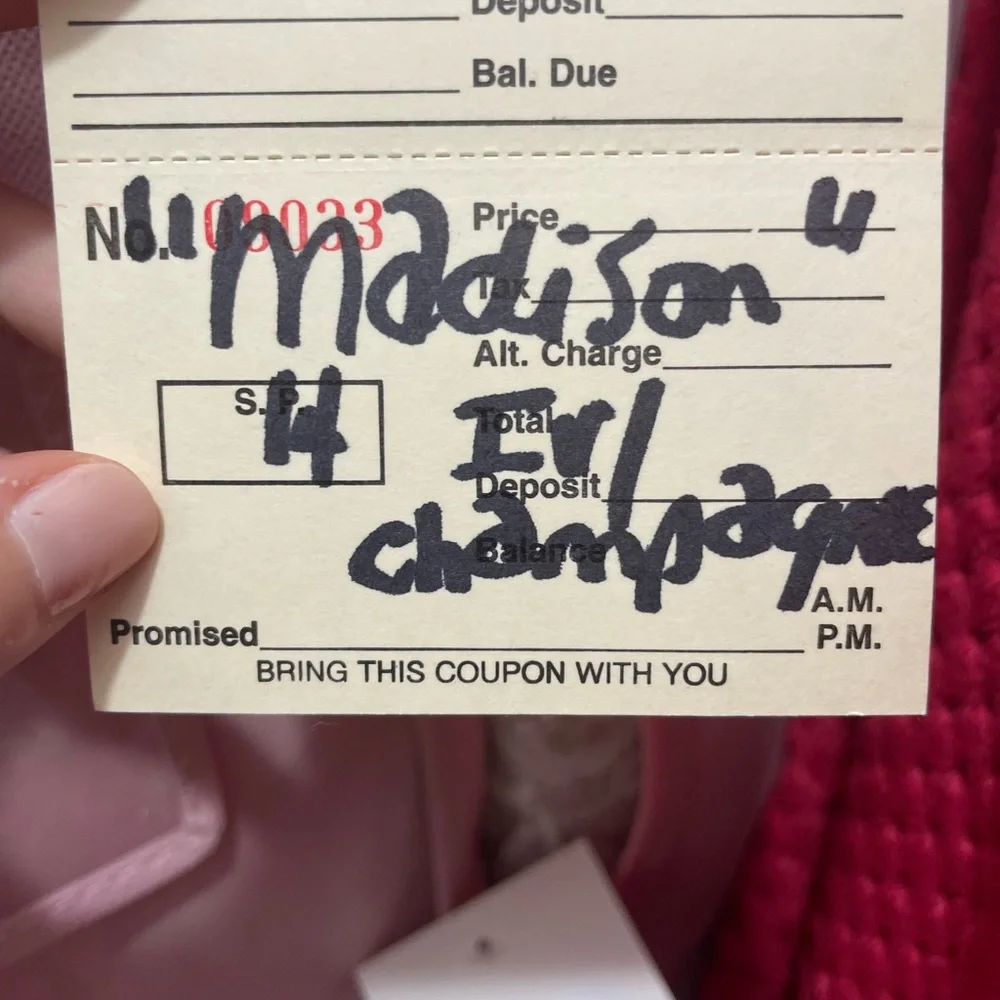 Deposit
Bal. Due
No. 00033 Price
"Madison"
Tax
Alt. Charge
S. P.
14 Total
IVI
Deposit
champagne
Balance
A.M.
Promised P.M.
BRING THIS COUPON WITH YOU